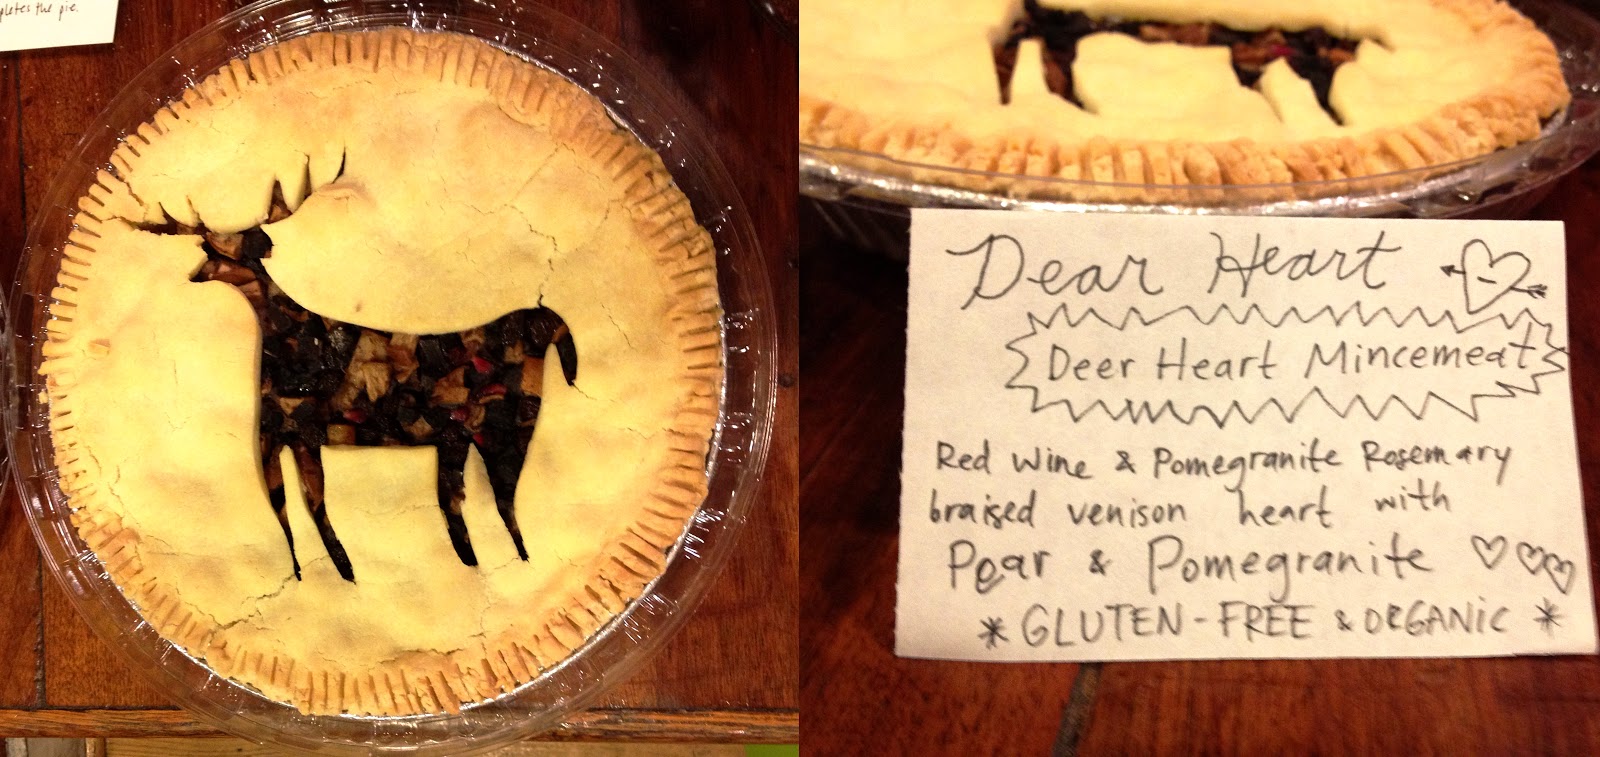 pletes the pie.
Dear Heart
Deer Heart Mincemeat
Red Wine & Pomegranite Rosemary
braised venison heart with
Pear & Pomegranite
* GLUTEN-FREE & ORGANIC *